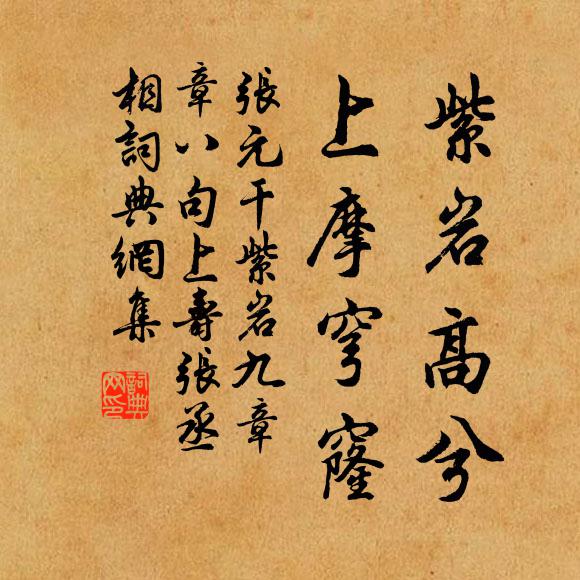 紫岩高兮
上摩穹窿
張元干紫岩九章
章八句上壽張丞
相詞典網集
詞典
网印